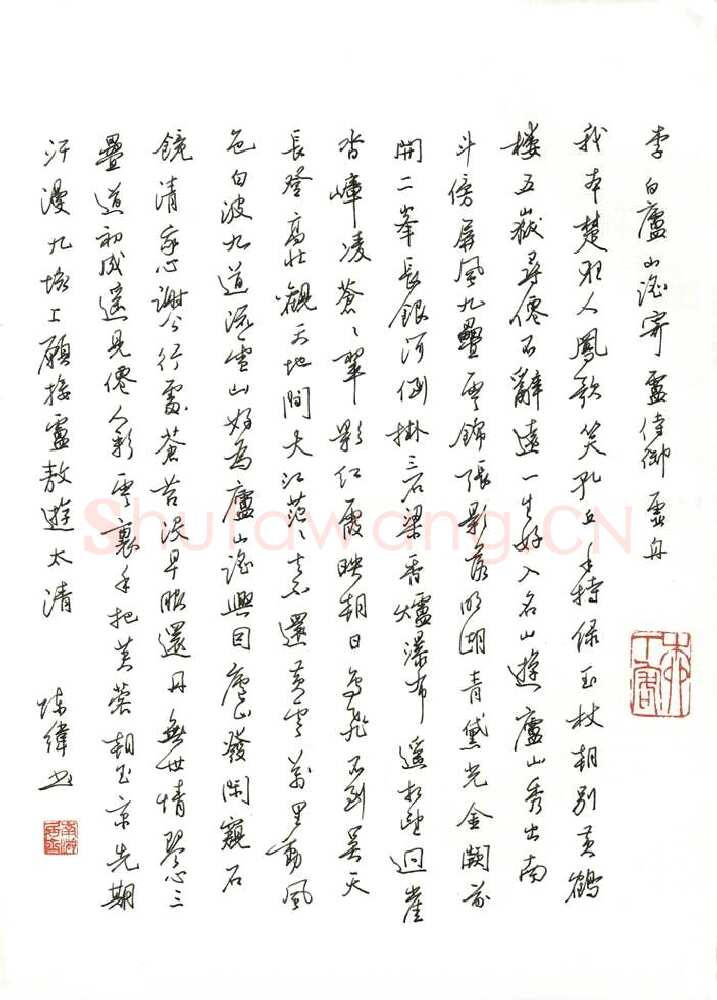 李白廬山謠寄盧侍御虛舟
我本楚狂人鳳歌笑孔丘手持綠玉杖朝別黃鶴
樓五嶽尋僊不辭遠一生好入名山遊廬山秀出南
斗傍屏風九疊雲錦張影落明湖青黛光金闕前
開二峯長銀河倒掛三石梁香爐瀑布遙相望迴崖
沓嶂凌蒼蒼翠影紅霞映朝日鳥飛不到吳天
長登高壯觀天地間大江茫茫去不還黃雲萬里動風
色白波九道流雪山好為廬山謠興因廬山發閑窺石
鏡清我心謝公行處蒼苔沒早服還丹無世情琴心三
疊道初成遙見僊人彩雲裏手把芙蓉朝玉京先期
汗漫九垓上願接盧敖遊太清
陳緯書
Shufawang.CN